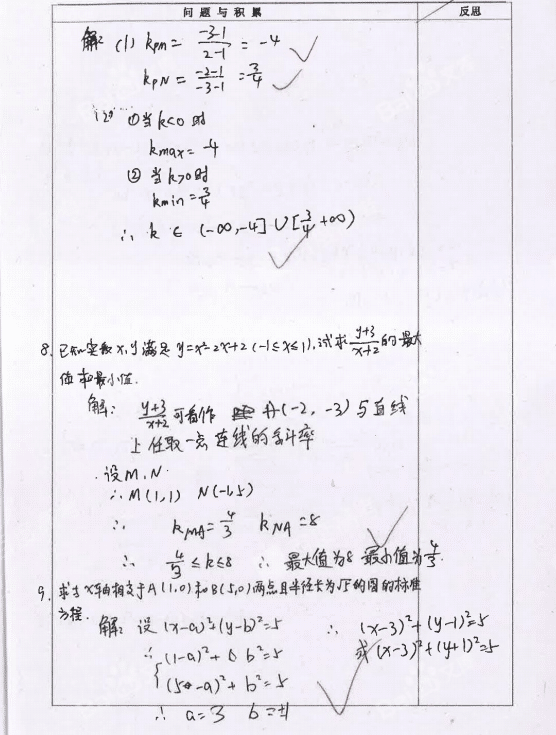 问题与积累 反思
解: (1) kPM = \frac{-3-1}{2-1} = -4
kPN = \frac{-2-1}{-3-1} = \frac{3}{4}
(2) ①当k<0时
kmax = -4
② 当k>0时
kmin = \frac{3}{4}
∴ k ∈ (-∞,-4] ∪ [\frac{3}{4} +∞)
8. 已知实数x,y满足 y=x²-2x+2 (-1≤x≤1),试求\frac{y+3}{x+2}的最大
值和最小值.
解: \frac{y+3}{x+2}可看作 A(-2, -3)与直线
上任取一点连线的斜率
设M,N.
∴ M(1,1) N(-1,5)
∴ kMA = \frac{4}{3} kNA = 8
∴ \frac{4}{3} ≤ k ≤ 8 ∴ 最大值为8 最小值为\frac{4}{3}.
9. 求与x轴相交于A(1,0)和B(5,0)两点且半径长为√5的圆的标准
方程.
解: 设 (x-a)²+(y-b)²=5 ∴ (x-3)²+(y-1)²=5
∴ { (1-a)²+ b²=5 或(x-3)²+(y+1)²=5
(5-a)²+ b²=5
∴ a=3 b=±1